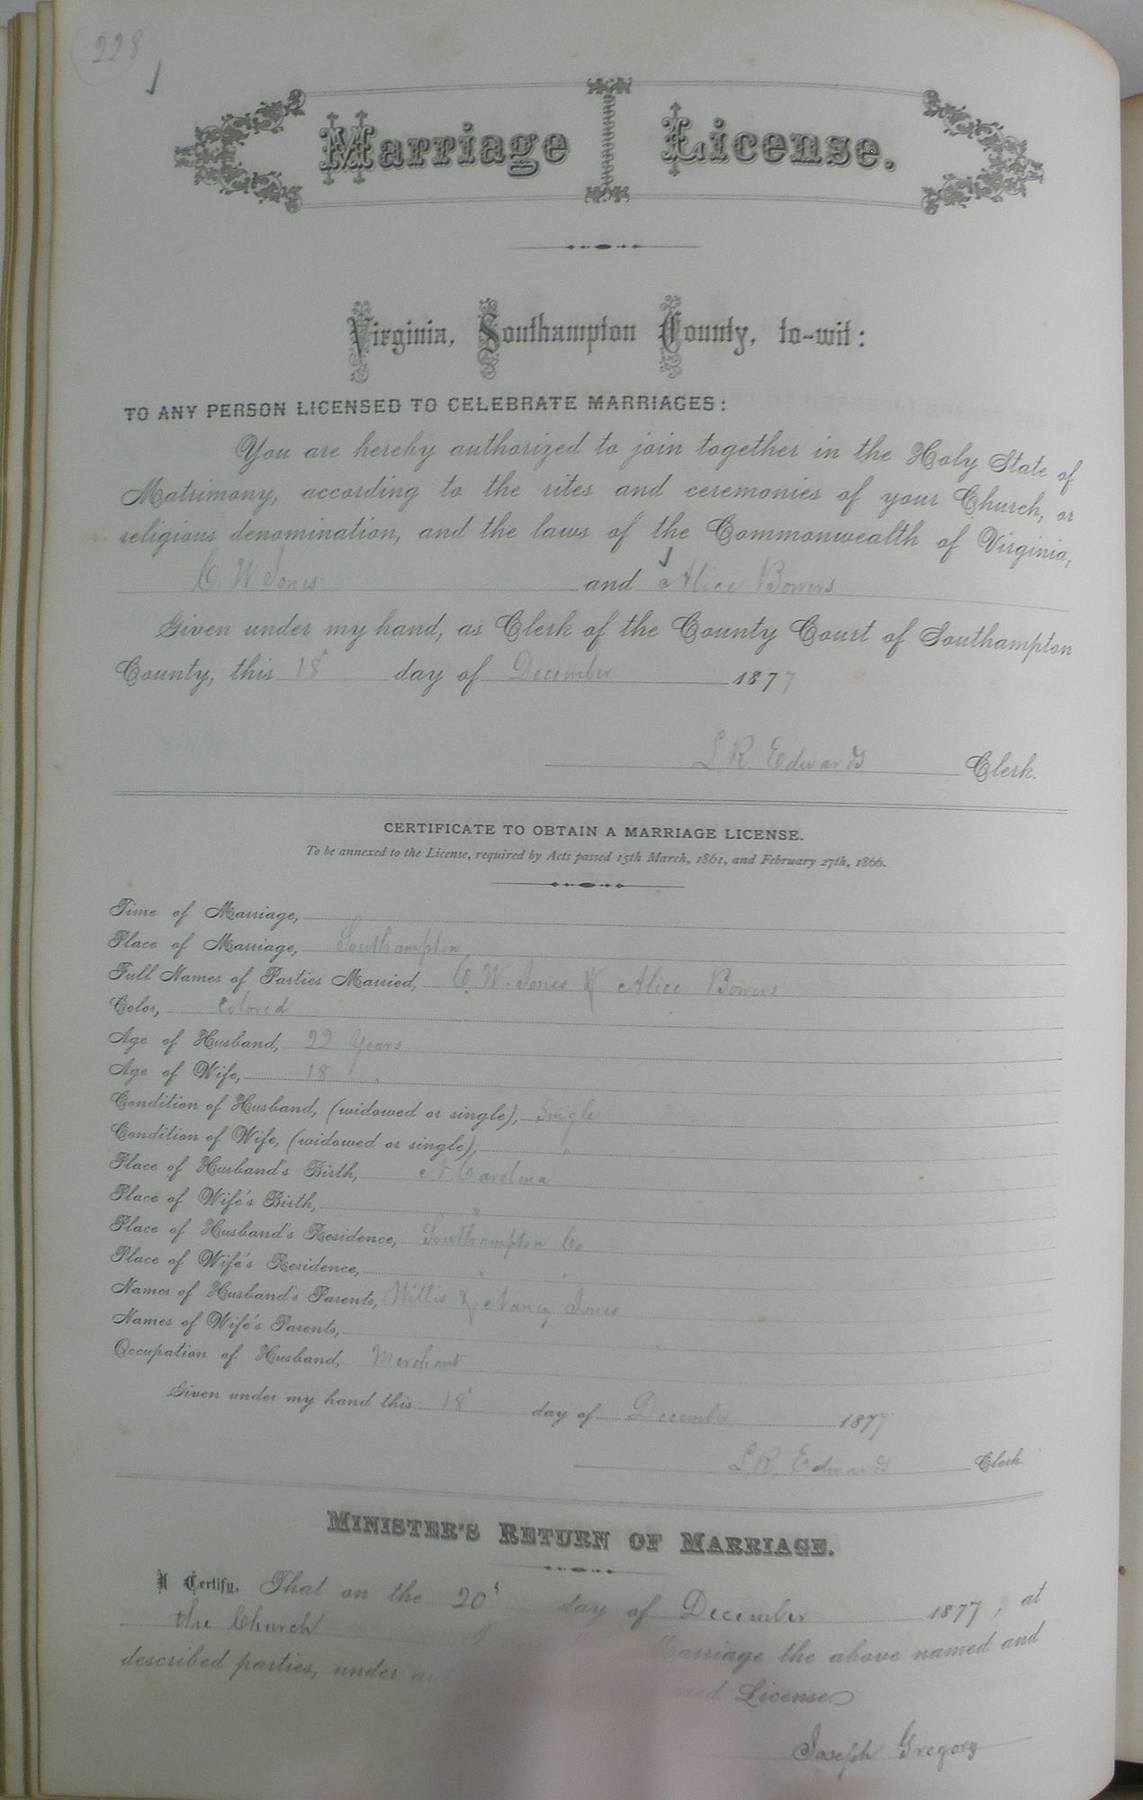 228
Marriage License.
Virginia, Southampton County, to-wit:
TO ANY PERSON LICENSED TO CELEBRATE MARRIAGES:
You are hereby authorized to join together in the Holy State of
Matrimony, according to the rites and ceremonies of your Church, or
religious denomination, and the laws of the Commonwealth of Virginia,
C. W Jones and Alice Bowers
Given under my hand, as Clerk of the County Court of Southampton
County, this 18 day of December 1877
L. R. Edwards Clerk.
CERTIFICATE TO OBTAIN A MARRIAGE LICENSE.
To be annexed to the License, required by Acts passed 15th March, 1861, and February 27th, 1866.
Time of Marriage,
Place of Marriage, Southampton
Full Names of Parties Married, C. W. Jones & Alice Bowers
Color, Colored
Age of Husband, 22 Years
Age of Wife, 18 "
Condition of Husband, (widowed or single), Single
Condition of Wife, (widowed or single), "
Place of Husband's Birth, N. Carolina
Place of Wife's Birth, "
Place of Husband's Residence, Southampton Co
Place of Wife's Residence, " "
Names of Husband's Parents, Willis & Nancy Jones
Names of Wife's Parents,
Occupation of Husband, Merchant
Given under my hand this 18 day of December 1877
L. R. Edwards Clerk.
MINISTER'S RETURN OF MARRIAGE.
I Certify, That on the 20 day of December 1877, at
the Church Marriage the above named and
described parties, under License
Joseph Gregory